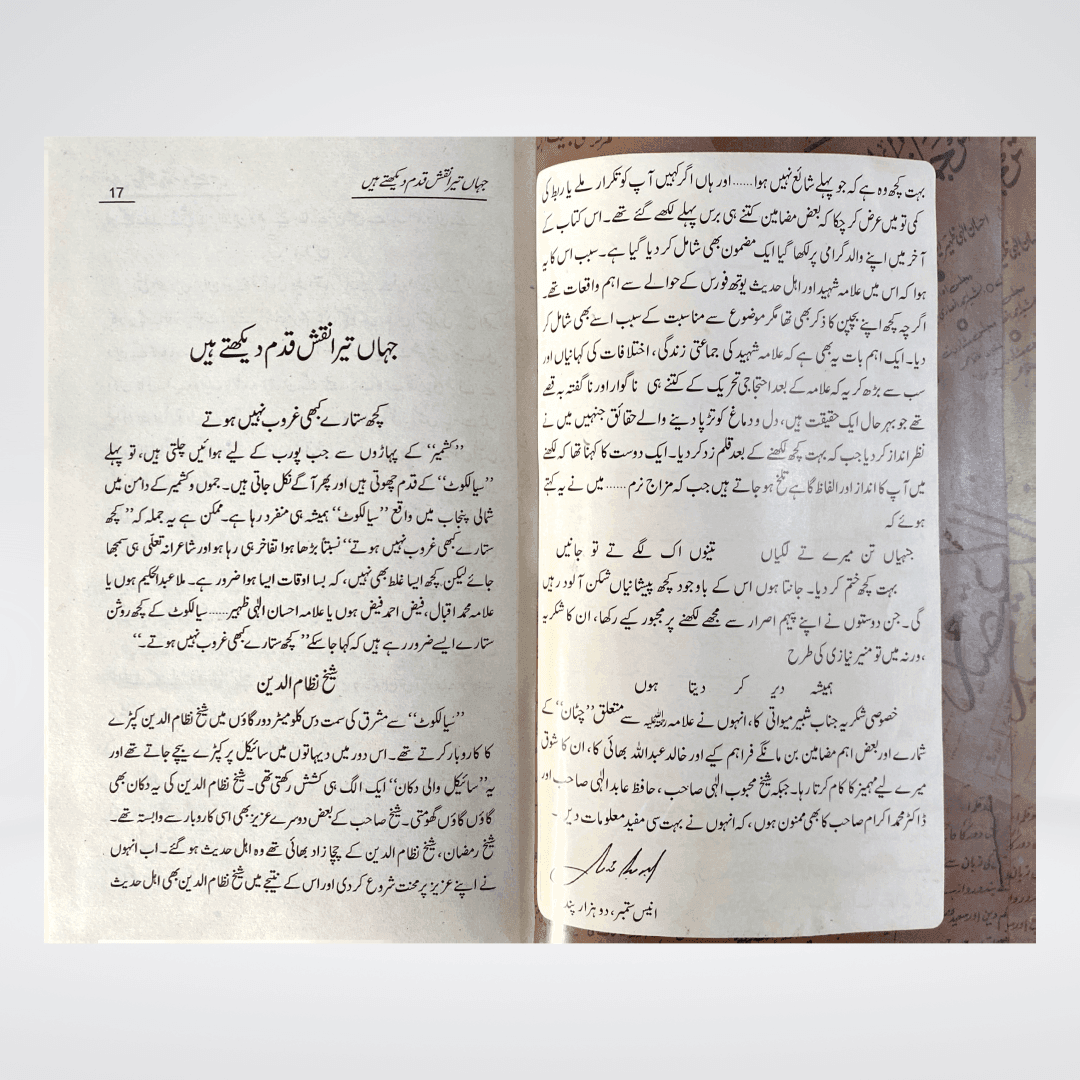 بہت کچھ وہ ہے کہ جو پہلے شائع نہیں ہوا...... اور ہاں اگر کہیں آپ کو تکرار ملے یا ربط کی
کمی تو میں عرض کر چکا کہ بعض مضامین کتنے ہی برس پہلے لکھے گئے تھے۔ اس کتاب کے
آخر میں اپنے والد گرامی پر لکھا گیا ایک مضمون بھی شامل کر دیا گیا ہے۔ سبب اس کا یہ
ہوا کہ اس میں علامہ شہید اور اہل حدیث یوتھ فورس کے حوالے سے اہم واقعات تھے۔
اگرچہ کچھ اپنے بچپن کا ذکر بھی تھا مگر موضوع سے مناسبت کے سبب اسے بھی شامل کر
دیا۔ ایک اہم بات یہ بھی ہے کہ علامہ شہید کی جماعتی زندگی، اختلافات کی کہانیاں اور
سب سے بڑھ کر یہ کہ علامہ کے بعد احتجاجی تحریک کے کتنے ہی ناگوار اور ناگفتہ بہ قصے
تھے جو بہر حال ایک حقیقت ہیں، دل و دماغ کو تڑپا دینے والے حقائق جنہیں میں نے
نظر انداز کر دیا جب کہ بہت کچھ لکھنے کے بعد قلم زد کر دیا۔ ایک دوست کا کہنا تھا کہ لکھنے
میں آپ کا انداز اور الفاظ گاہے تلخ ہو جاتے ہیں جب کہ مزاج نرم...... میں نے یہ کہتے
ہوئے کہ
جنہاں تن میرے تے لگیاں تینوں اک لگے تے تو جانیں
بہت کچھ ختم کر دیا۔ جانتا ہوں اس کے باوجود کچھ پیشانیاں شکن آلود رہیں
گی۔ جن دوستوں نے اپنے پیہم اصرار سے مجھے لکھنے پر مجبور کیے رکھا، ان کا شکریہ
،ورنہ میں تو منیر نیازی کی طرح
ہمیشہ دیر کر دیتا ہوں
خصوصی شکریہ جناب شبیر میواتی کا، انہوں نے علامہ رحمۃ اللہ علیہ سے متعلق ”چٹان“ کے
شمارے اور بعض اہم مضامین بن مانگے فراہم کیے اور خالد عبداللہ بھائی کا، ان کا شوق
میرے لیے مہمیز کا کام کرتا رہا۔ جبکہ شیخ محبوب الٰہی صاحب، حافظ عابد الٰہی صاحب اور
ڈاکٹر محمد اکرام صاحب کا بھی ممنون ہوں، کہ انہوں نے بہت سی مفید معلومات دیں۔
انیس ستمبر، دو ہزار
جہاں تیرا نقش قدم دیکھتے ہیں
17
جہاں تیرا نقش قدم دیکھتے ہیں
کچھ ستارے کبھی غروب نہیں ہوتے
”کشمیر“ کے پہاڑوں سے جب پورب کے لیے ہوائیں چلتی ہیں، تو پہلے
”سیالکوٹ“ کے قدم چھوتی ہیں اور پھر آگے نکل جاتی ہیں۔ جموں و کشمیر کے دامن میں
شمالی پنجاب میں واقع ”سیالکوٹ“ ہمیشہ ہی منفرد رہا ہے۔ ممکن ہے یہ جملہ کہ ”کچھ
ستارے کبھی غروب نہیں ہوتے“ نسبتاً بڑھا ہوا تفاخر ہی رہا ہو اور شاعرانہ تعلّی ہی سمجھا
جائے لیکن کچھ ایسا غلط بھی نہیں، کہ بسا اوقات ایسا ہوا ضرور ہے۔ ملا عبدالحکیم ہوں یا
علامہ محمد اقبال، فیض احمد فیض ہوں یا علامہ احسان الٰہی ظہیر...... سیالکوٹ کے کچھ روشن
ستارے ایسے ضرور رہے ہیں کہ کہا جا سکے ”کچھ ستارے کبھی غروب نہیں ہوتے۔“
شیخ نظام الدین
”سیالکوٹ“ سے مشرق کی سمت دس کلومیٹر دور گاؤں میں شیخ نظام الدین کپڑے
کا کاروبار کرتے تھے۔ اس دور میں دیہاتوں میں سائیکل پر کپڑے بیچے جاتے تھے اور
یہ ”سائیکل والی دکان“ ایک الگ ہی کشش رکھتی تھی۔ شیخ نظام الدین کی یہ دکان بھی
گاؤں گاؤں گھومتی۔ شیخ صاحب کے بعض دوسرے عزیز بھی اسی کاروبار سے وابستہ تھے۔
شیخ رمضان، شیخ نظام الدین کے چچا زاد بھائی تھے وہ اہل حدیث ہو گئے۔ اب انہوں
نے اپنے عزیز پر محنت شروع کر دی اور اس کے نتیجے میں شیخ نظام الدین بھی اہل حدیث